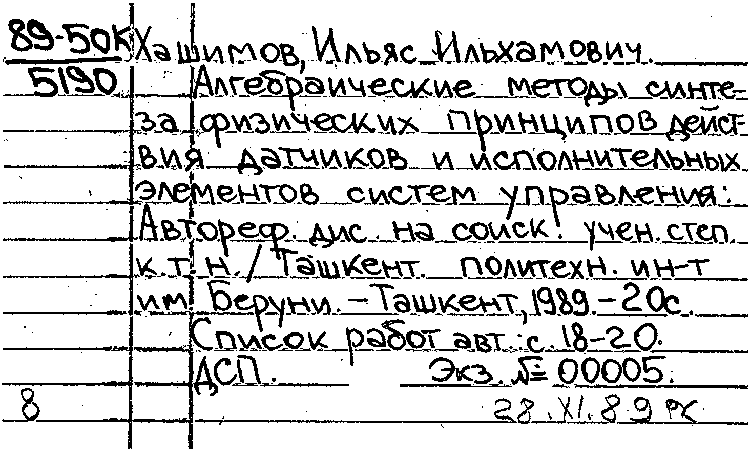 89-50К Хашимов, Ильяс Ильхамович.
5190 Алгебраические методы синте-
за физических принципов дейст-
вия датчиков и исполнительных
элементов систем управления:
Автореф. дис. на соиск. учен. степ.
к.т.н. / Ташкент. политехн. ин-т
им. Беруни. - Ташкент, 1989. - 20с.
Список работ авт.: с. 18-20.
ДСП. Экз. № 00005.
8 28.XI.89